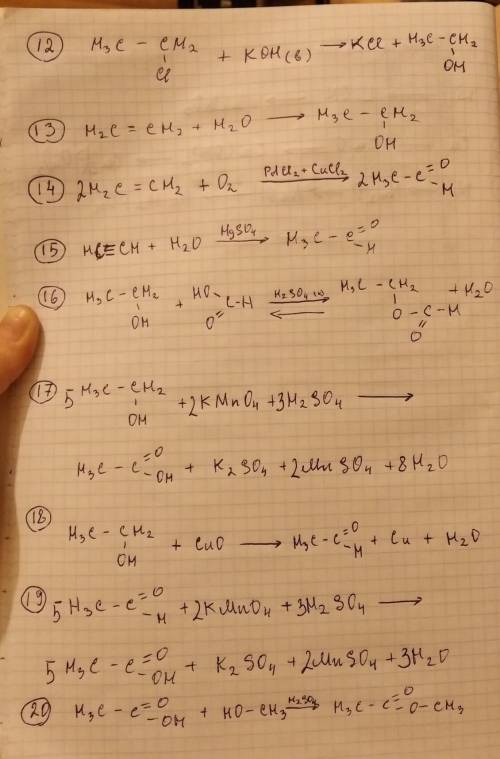 12 H₃C – CH₂ + KOH(в) → KCl + H₃C – CH₂
Cl OH
13 H₂C = CH₂ + H₂O → H₃C – CH₂
OH
14 2H₂C = CH₂ + O₂ PdCl₂ + CuCl₂ → 2H₃C – C = O
H
15 HC ≡ CH + H₂O HgSO₄ → H₃C – C = O
H
16 H₃C – CH₂ + HO – C – H H₂SO₄ (к) ⇄ H₃C – CH₂ + H₂O
OH O O – C – H
O
17 5 H₃C – CH₂ + 2KMnO₄ + 3H₂SO₄ →
OH
H₃C – C = O + K₂SO₄ + 2MnSO₄ + 8H₂O
OH
18 H₃C – CH₂ + CuO → H₃C – C = O + Cu + H₂O
OH H
19 5 H₃C – C = O + 2KMnO₄ + 3H₂SO₄ →
H
5 H₃C – C = O + K₂SO₄ + 2MnSO₄ + 3H₂O
OH
20 H₃C – C = O + HO – CH₃ H₂SO₄ → H₃C – C = O
OH O – CH₃